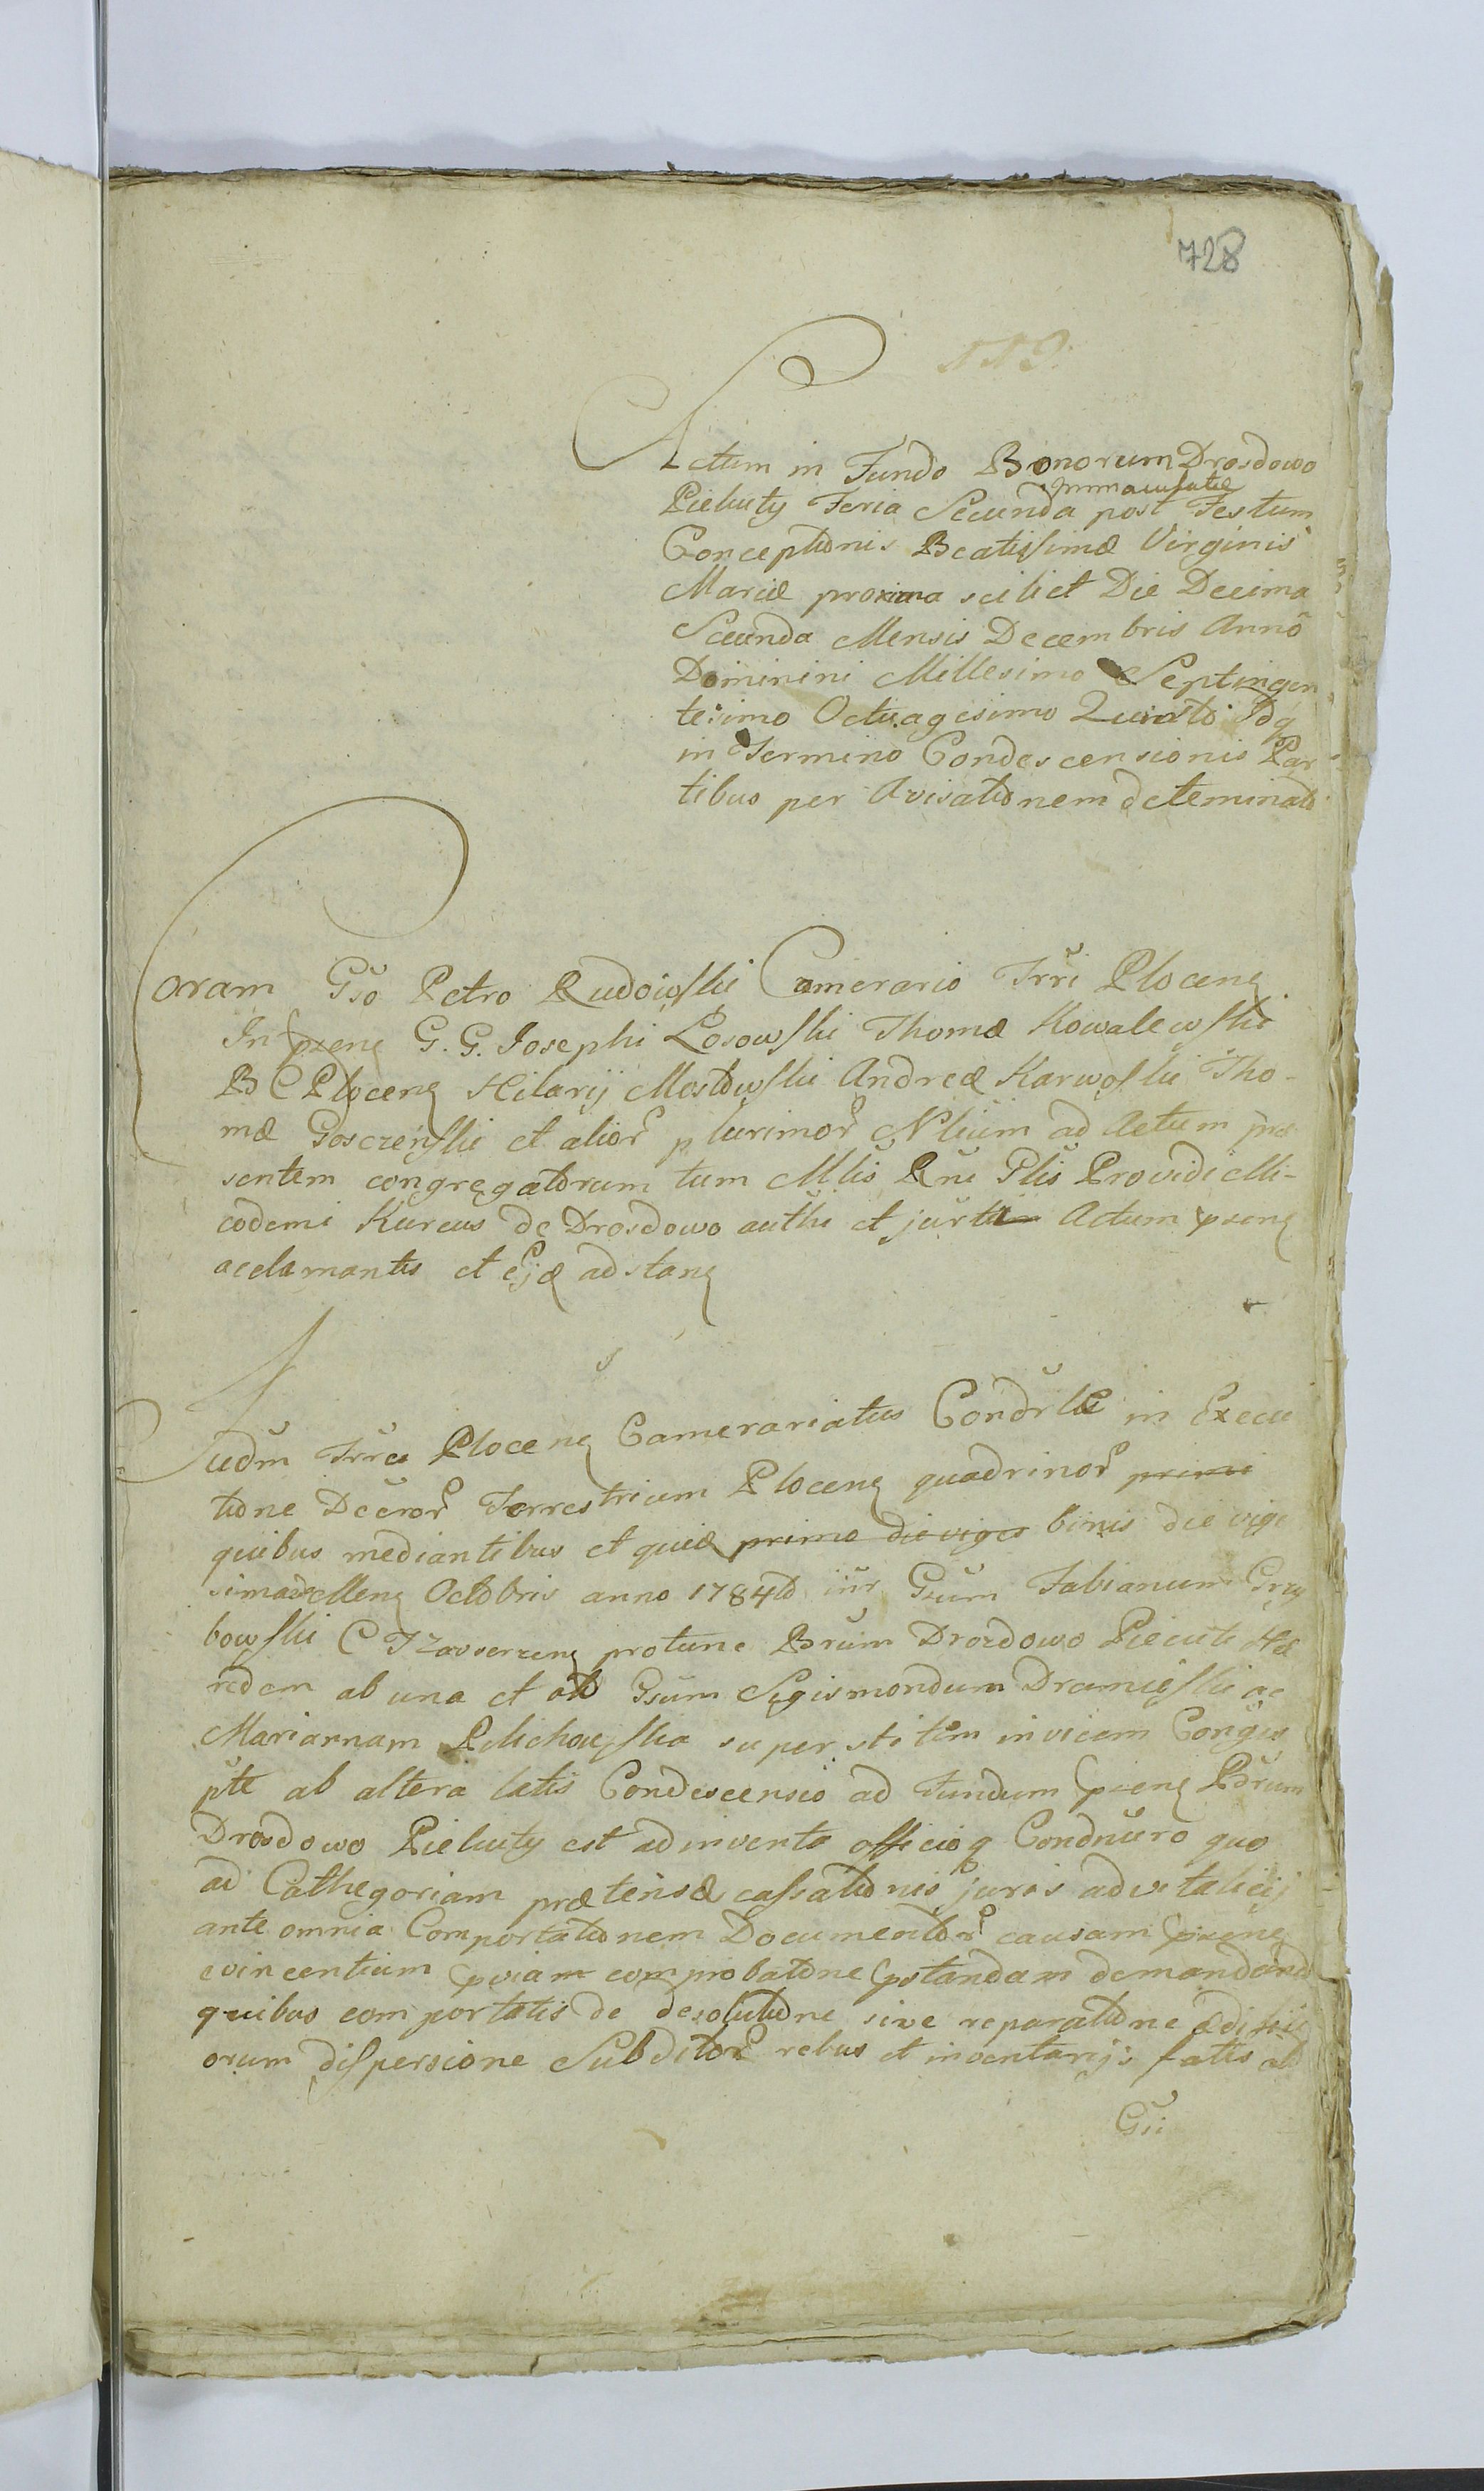 728
119.
Actum in Fundo Bonorum Drosdowo
Immaculatæ
Piekuty Feria Secunda post Festum
Conceptionis Beatissimæ Virginis
Mariæ proxima scilict Die Decima
Secunda Mensis Decembris Anno
Dominini Millesimo Septingen
tesimo Octuagesimo Quarto Idq
in Termino Condescensionis Par
tibus per Avisationem deteminato
Coram Gso Petro Rudowski Camerario Trri Plocen
In pxen G. G. Josephi Losowski Thomæ Kowalewski
B C Plocen Hilarij Mostowski Andreæ Karwoski Tho-
mæ Gosczenski et alior plurimor Nlium ad Actum præ
sentem congregatorum tum Mlis Rni Plis Providi Ni-
codemi Kurcus de Drosdowo authi et jurti Actum pxen
acclamantis et Ejæ adstan
Judm Trre Plocen Camerariatus Condrle in Execu
tione Decror Terrestrium Plocen quadrinor primi
quibus mediantibus et quid prima die viges binis die vige
sima Men Octobris anno 1784to inr Gsum Fabianum Grzy
bowski C Zawerzen protunc Brum Drozdowo Piecuti Hæ
redem ab una et ab Gsum Sigismondum Dramiński ac
Mariannam Pilichowska superstitem invicem Conges
pte ab altera latis Condescensio ad Fundum pxen Bdrum
Drosdowo Piekuty est adinventa officioq Condnuro quo
ad Cathegoriam prætensæ cassationis juris advitalicij
ante omnia Comportationem Documentor causam pxen
evincentium pviam comprobatone pstandam demandand
quibus comportatis de desolutione sive reparatione ædifici
orum dispersione Subditor rebus et inventarijs fatis ab
Gsi